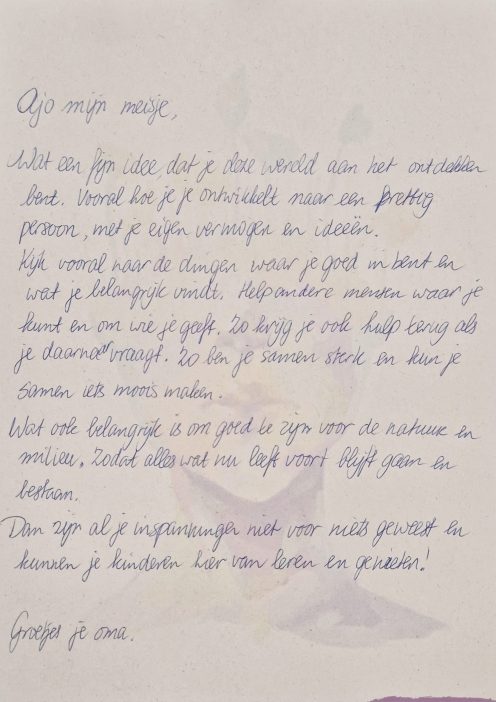 Ajo mijn meisje,
Wat een fijn idee, dat je deze wereld aan het ontdekken
bent. Vooral hoe je je ontwikkelt naar een prettig
persoon, met je eigen vermogen en ideeën.
Kijk vooral naar de dingen waar je goed in bent en
wat je belangrijk vindt. Help andere mensen waar je
kunt en om wie je geeft. Zo krijg je ook hulp terug als
je daarnaar vraagt. Zo ben je samen sterk en kun je
samen iets moois maken.
Wat ook belangrijk is om goed te zijn voor de natuur en
milieu. Zodat alles wat nu leeft voort blijft gaan en
bestaan.
Dan zijn al je inspanningen niet voor niets geweest en
kunnen je kinderen hier van leren en genieten!
Groetjes je oma.